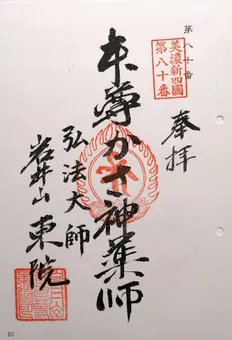 第八十番
美濃新四國
第八十番
奉拝
本尊かさ神薬師
弘法大師
岩井山 東院
80